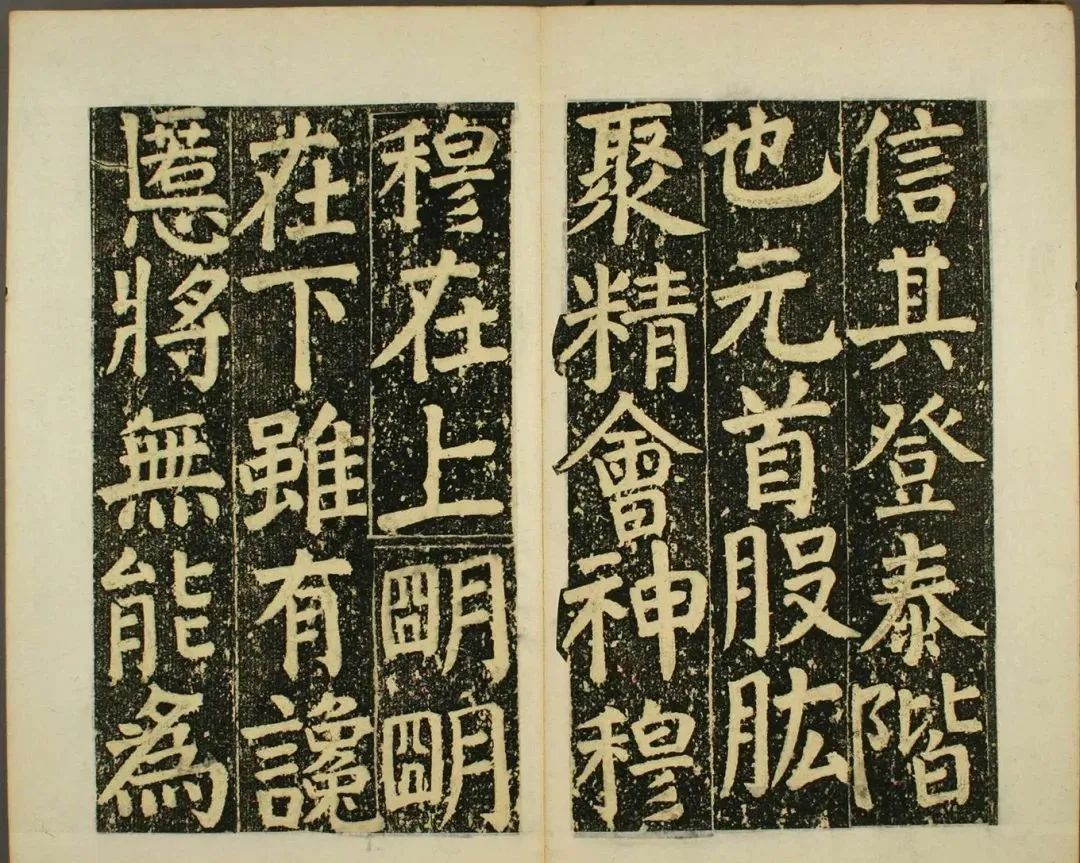 信其登泰階
也元首股肱
聚精會神穆
穆在上明明
在下雖有讒
慝將無能為